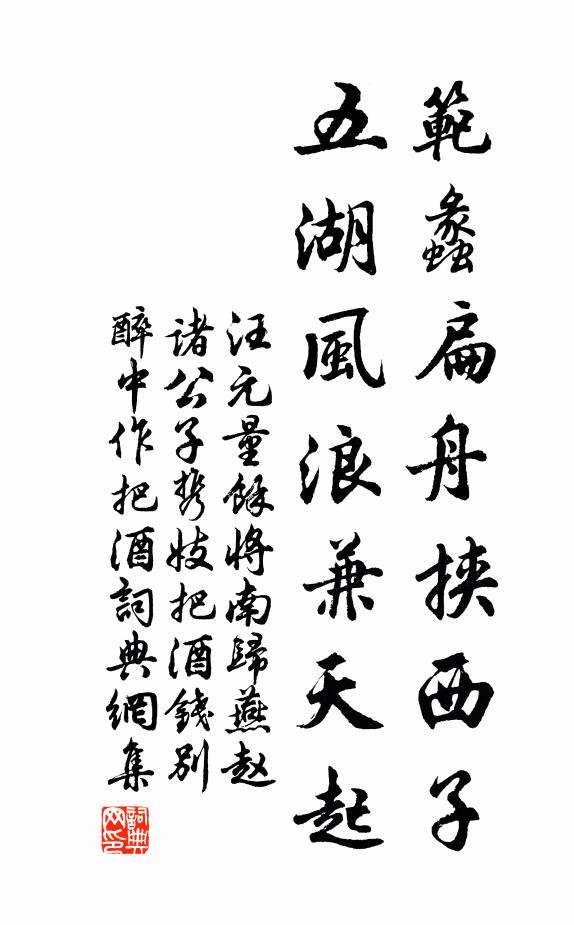 範蠡扁舟挾西子
五湖風浪兼天起
汪元量餘將南歸燕赵
諸公子携妓把酒錢别
醉中作把酒詞典網集
詞典
网印